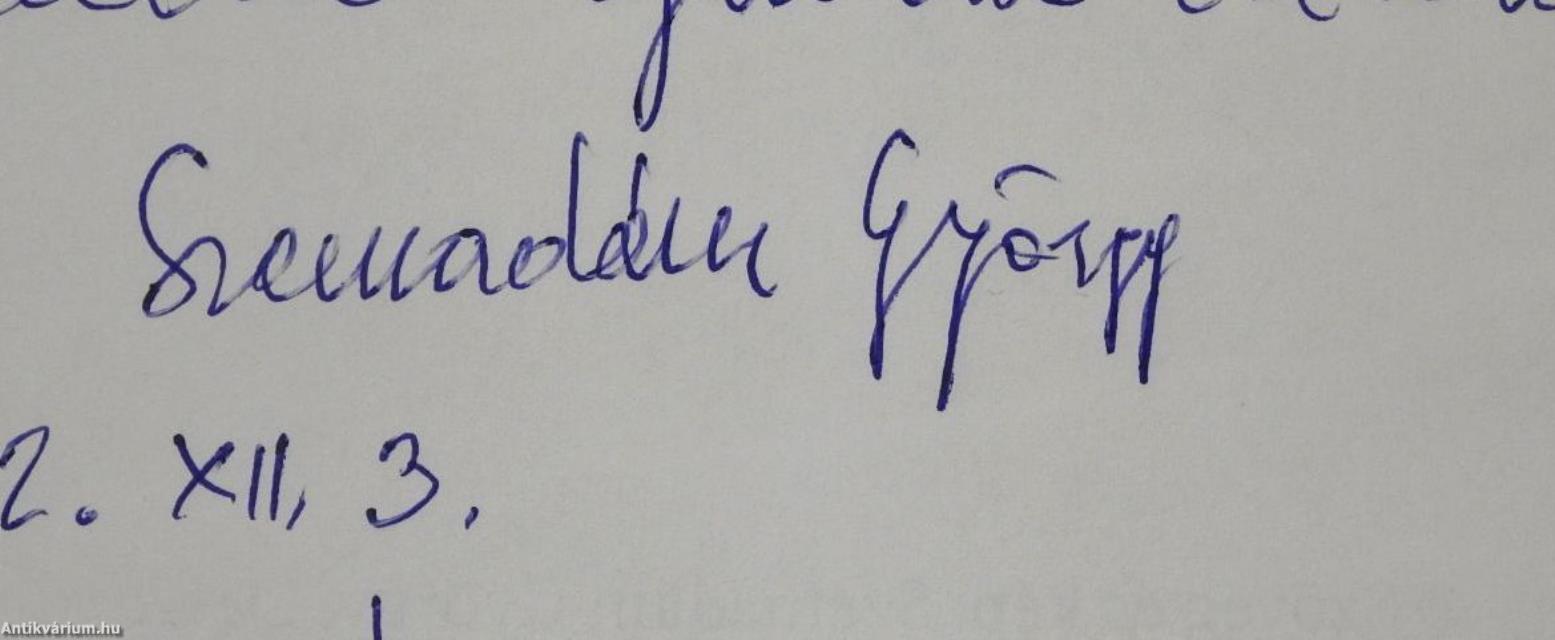 Szemadám György
2. XII, 3.
Antikvárium.hu